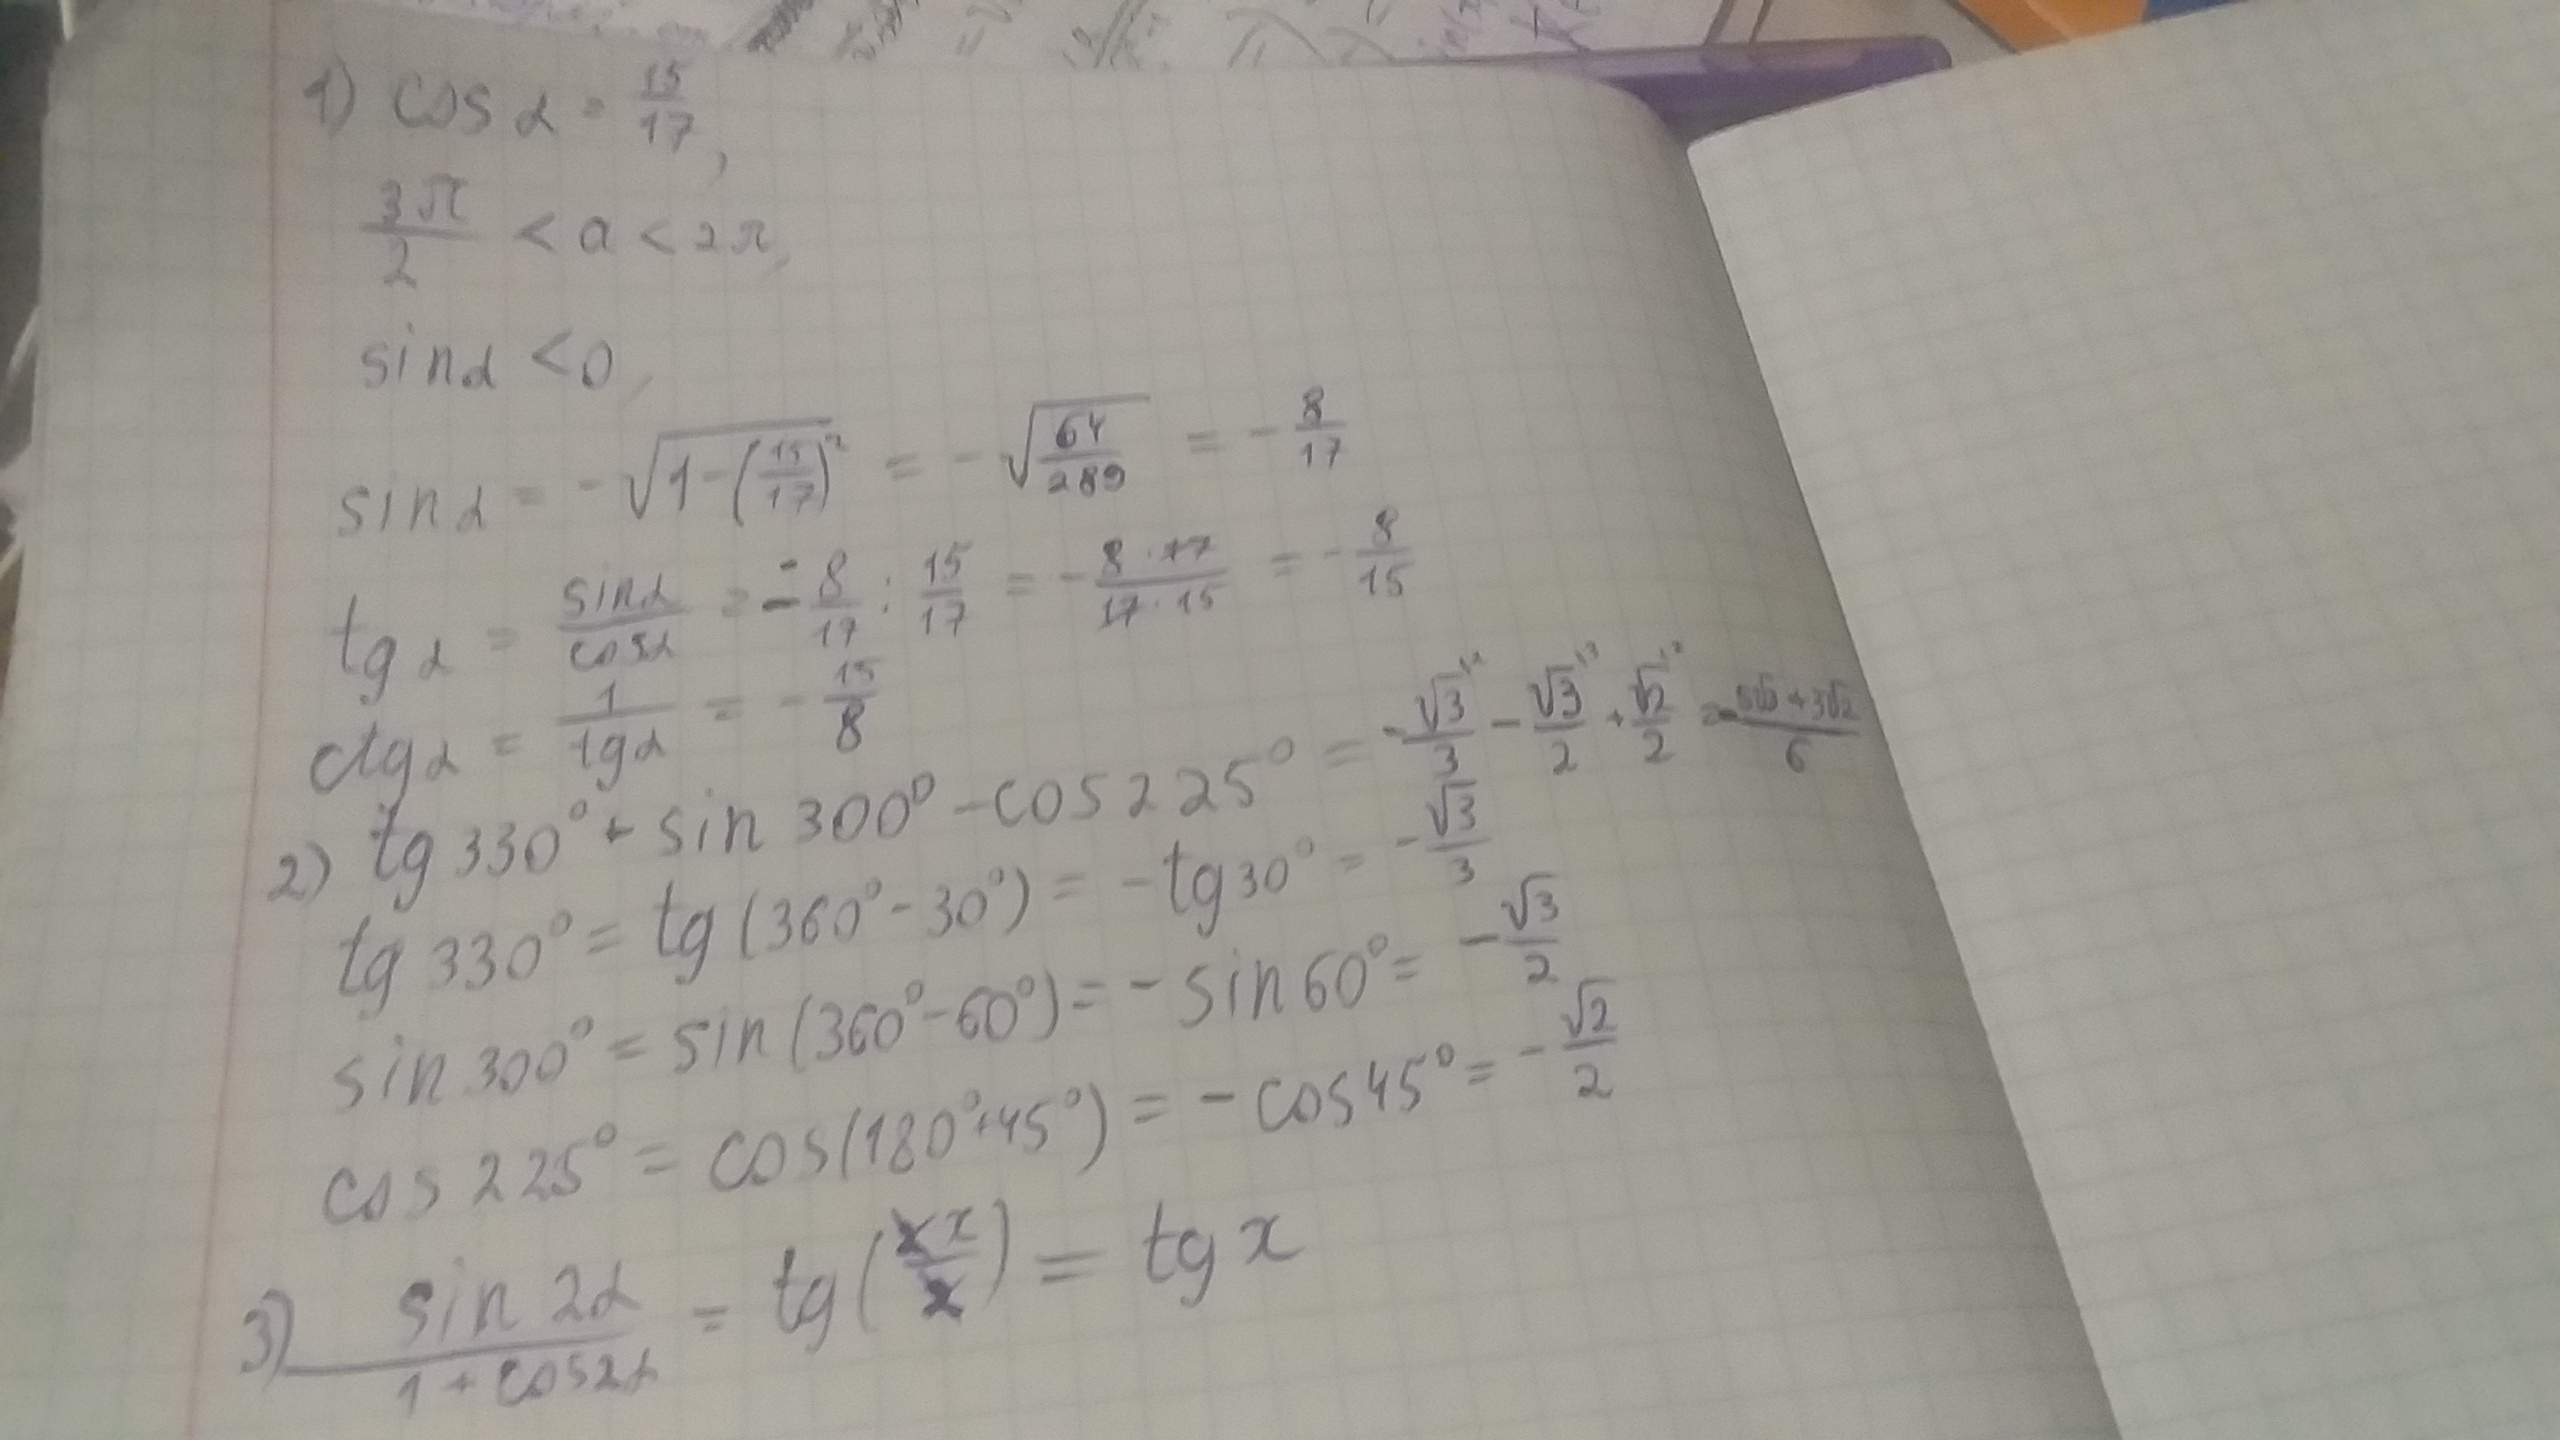 1) cos α = 15/17,
3π/2 < a < 2π,
sin α < 0,
sin α = -√(1-(15/17)²) = -√(64/289) = -8/17
tg α = sin α/cos α = -8/17 : 15/17 = -(8·17)/(17·15) = -8/15
ctg α = 1/tg α = -15/8
2) tg 330° + sin 300° - cos 225° = -√3/3 - √3/2 + √2/2 = (-5√3+3√2)/6
tg 330° = tg (360° - 30°) = -tg 30° = -√3/3
sin 300° = sin (360° - 60°) = -sin 60° = -√3/2
cos 225° = cos (180°+45°) = -cos 45° = -√2/2
3) sin 2α/(1 + cos 2α) = tg ( x ) = tg x